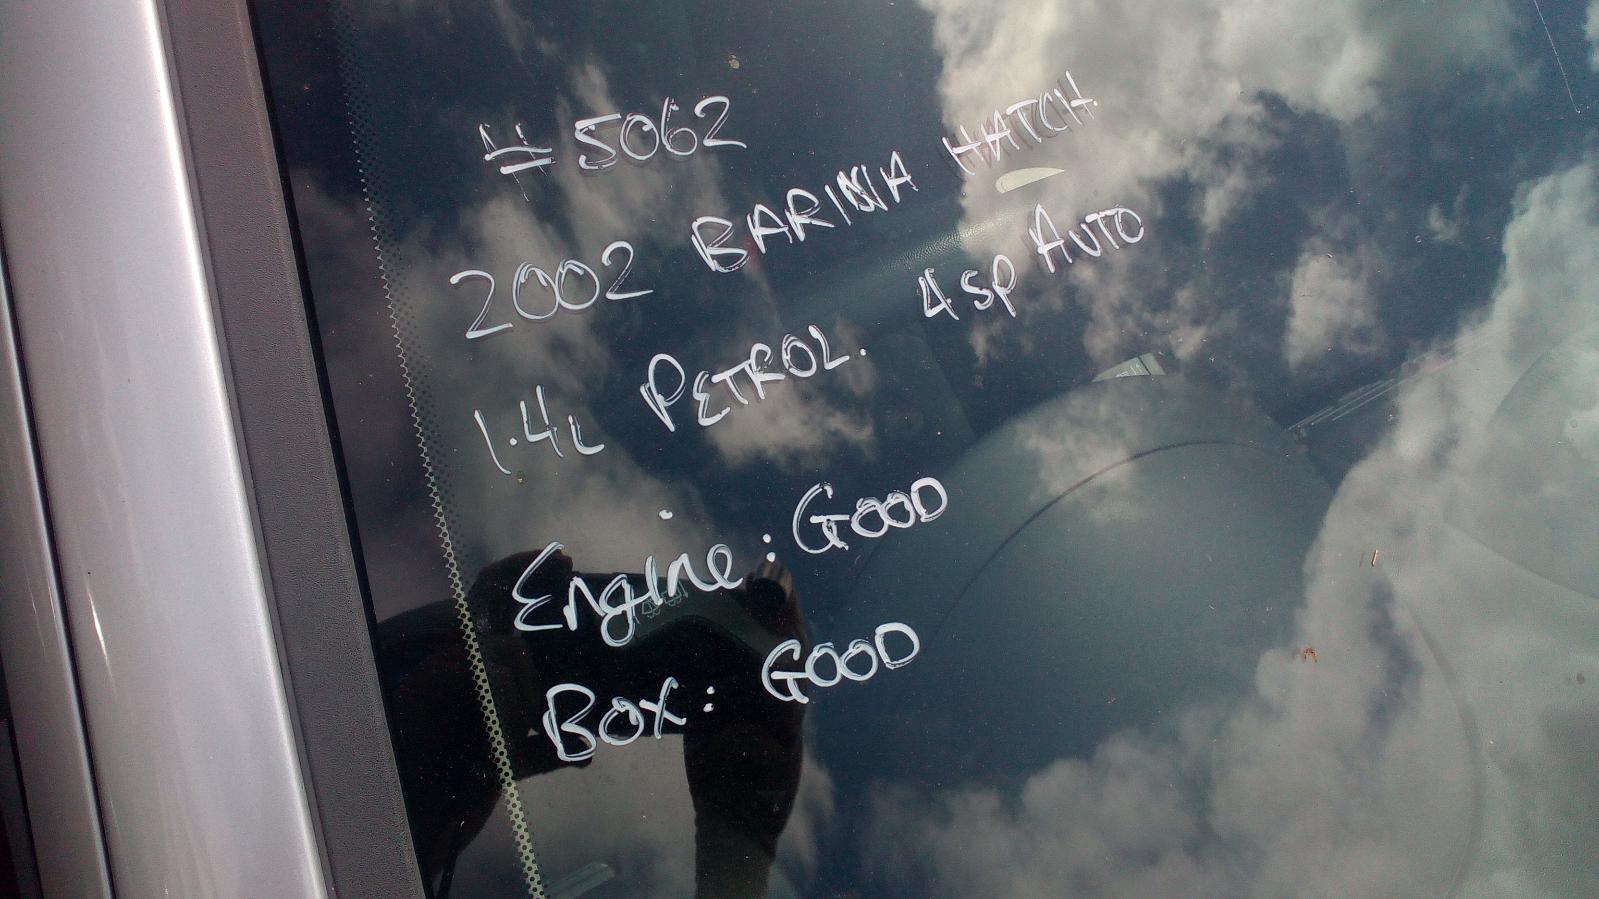 #5062
2002 BARINA HATCH.
1.4L PETROL. 4sp AUTO
Engine: GOOD
BOX: GOOD